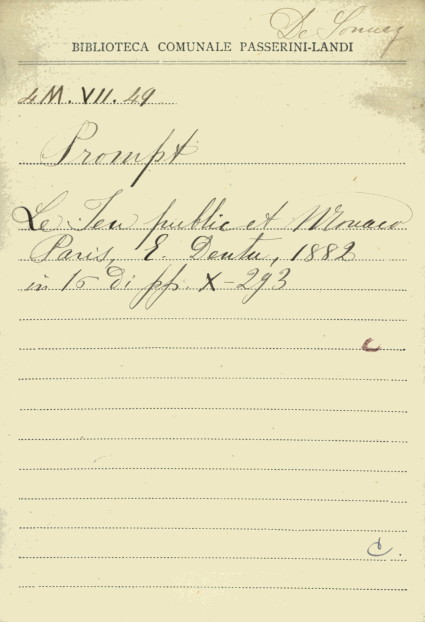 De Sonnaz
BIBLIOTECA COMUNALE PASSERINI-LANDI
4M. VII. 49
Prompt
Le Jeu public et Monaco
Paris, E. Dentu, 1882
in 16 di pp. X-293
C
C.